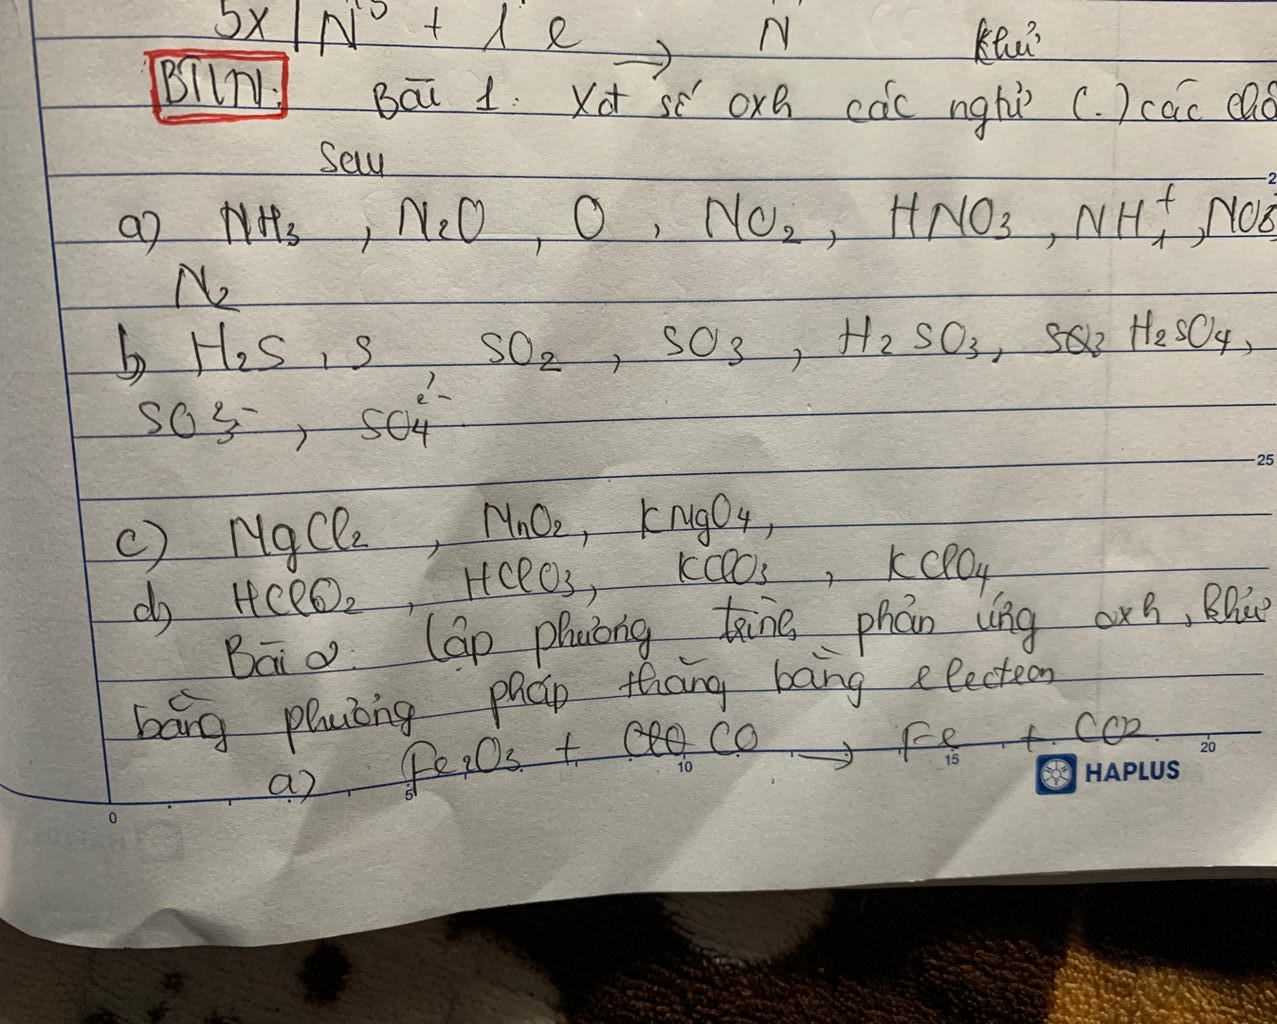 5x | N+5 + 1 e → N khử
BTVN. Bài 1. Xđ số oxh các nghtử (.) các chấ
sau
a) NH3 , N2O , O , NO2 , HNO3 , NH4+ , NO3
N2
b) H2S , S , SO2 , SO3 , H2SO3, H2SO4,
SO32- , SO42-
25
c) MgCl2 , MnO2 , KMgO4,
d) HClO2 , HClO3, KClO3 , KClO4
Bài 2: Lập phương trình phản ứng oxh, khử
bằng phương pháp thăng bằng electron
a) Fe2O3 + CO → Fe + CO2
0 5 10 15 20
HAPLUS